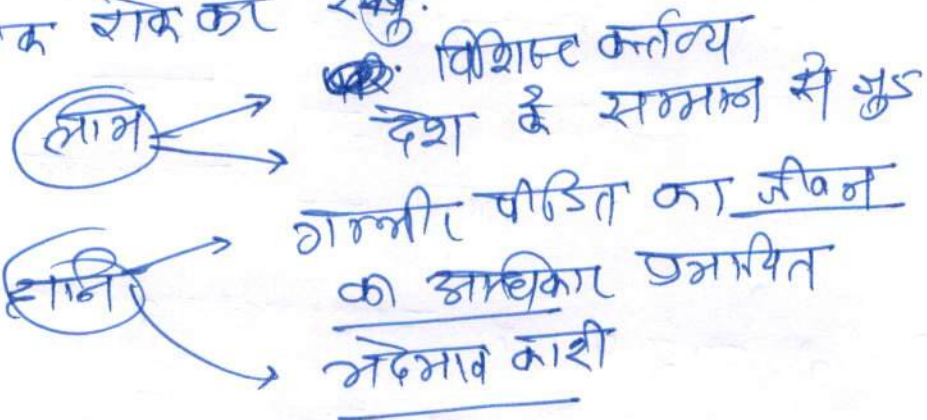 क रोक कर रखूं.
विशिष्ट कर्तव्य
लाभ
देश के सम्मान से जुड़
गम्भीर पीडित का जीवन
हानि
का अधिकार प्रभावित
भदेभाव कारी